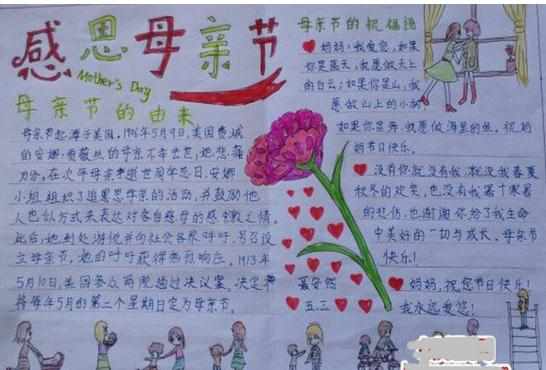 感恩母亲节
Mother's Day
母亲节的由来
母亲节起源于美国,1906年5月9日,美国费城
的安娜·查薇丝的母亲不幸去世,她悲痛
万分,在次年母亲逝世周年忌日,安娜
小姐组织了追思母亲的活动,并鼓励他
人也以方式来表达对各自慈母的感激之情。
此后,她到处游说并向社会各界呼吁,号召设
立母亲节。她的呼吁获得热烈响应。1913年
5月10日,美国参众两院通过决议案,决定
将每年5月的第二个星期日定为母亲节。
母亲节的祝福语
妈妈,我爱您,如果
你是蓝天,我愿做天上
的白云;如果你是山,我
愿做山上的小树
如果你是海,我愿做海里的鱼,祝妈
妈节日快乐。
没有你就没有我,就没我春夏
秋冬的欢笑,也没有我寒暑
的悲伤,也谢谢你给了我生命
中美好的一切与成长,母亲节
快乐!
妈妈,祝您节日快乐!
我永远爱您!
五.三